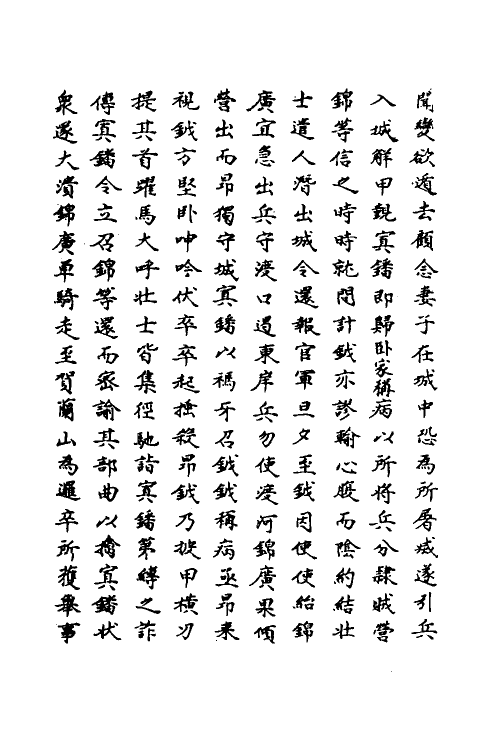 聞變欲遁去顧念妻子在城中恐為所屠戚遂引兵
入城解甲覲寘鐇即歸卧家稱病以所將兵分隸賊營
錦等信之時時就問計鉞亦謬輸心腹而陰約結壯
士遣人潛出城令還報官軍旦夕至鉞因使使紿錦
廣宜急出兵守渡口遏東岸兵勿使渡河錦廣果傾
營出而昂獨守城寘鐇以禡牙召鉞鉞稱病亟昂来
視鉞方堅卧呻吟伏卒卒起捶殺昂鉞乃披甲橫刃
提其首躍馬大呼壮士皆集徑馳詣寘鐇第縛之詐
傳寘鐇令立召錦等還而密諭其部曲以擒寘鐇狀
衆遂大潰錦廣單騎走至賀蘭山為邏卒所獲舉事